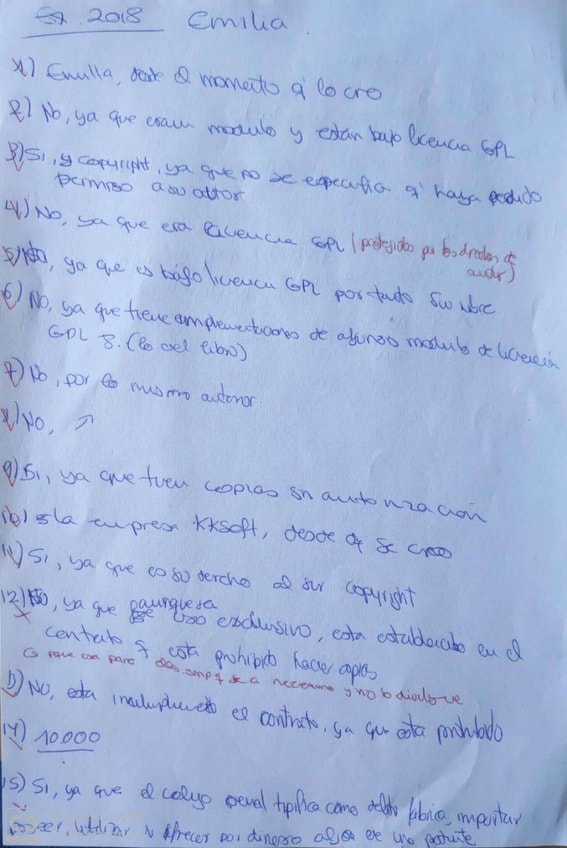 Ex. 2018 Emilia
1) Emilia, desde el momento q' lo creo
2) No, ya que es un modulo y están bajo licencia GPL
3) Si, y copyright, ya que no se especifica q' haya pedido
permiso a su autor
4) No, ya que era licencia GPL (protegidos por los drechos de
autor)
5) No, ya que es bajo licencia GPL por tanto Sw libre
6) No, ya que tiene implementaciones de algunos modulo de licencia
GPL 8. (lo del libro)
7) No, por lo mismo anterior
8) No,
9) Si, ya que tuen copias sin autorización
10) Es la empresa KKSoft, desde q se creo
11) Si, ya que es su derecho al ser copyright
12) No, ya que aunque sea uso exclusivo, esta establecido en el
contrato q esta prohibido hacer copias
es para q se a necesario y no lo divulgue
13) No, esta incumpliendo el contrato, ya que esta prohibido
14) 10.000
15) Si, ya que el codigo penal tipifica como delito fabrica, importar
poseer, utilizar u ofrecer por dinero